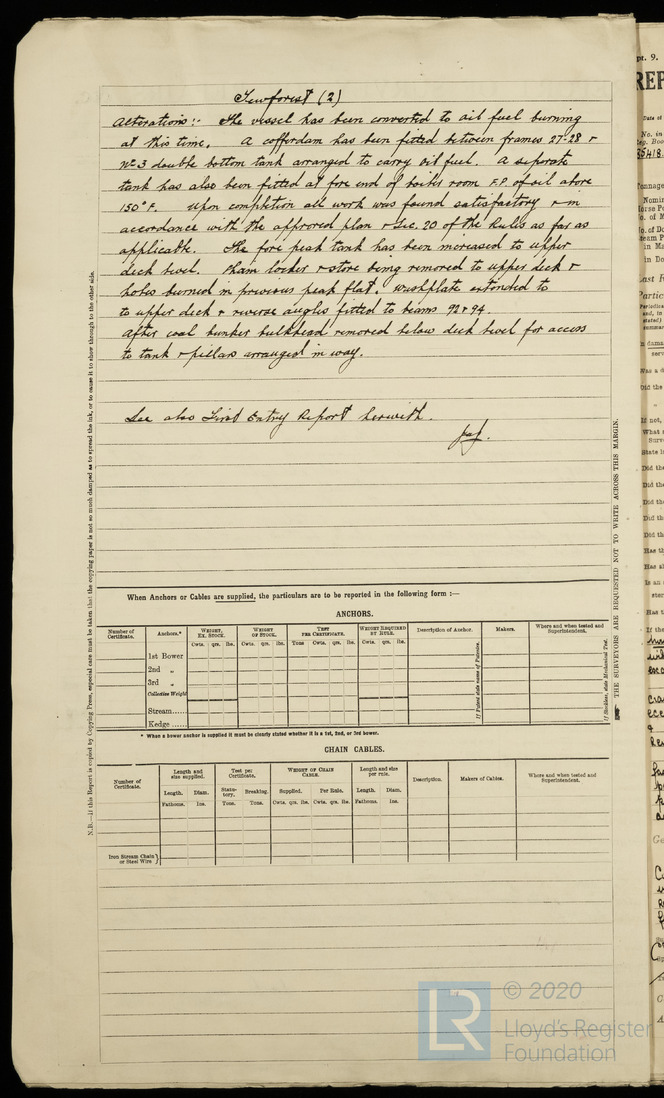 (2)
Alterations:- The vessel has been converted to oil fuel burning
at this time. A cofferdam has been fitted between frames 27-28 &
No 3 double bottom tank arranged to carry oil fuel. A separate
tank has also been fitted at fore end of boiler room F.P. of oil above
150° F. Upon completion all work was found satisfactory & in
accordance with the approved plan & Sec. 20 of the Rules as far as
applicable. The fore peak tank has been increased to upper
deck level. Chain locker & store being removed to upper deck &
holes burned in previous peak flat. Washplate extended to
to upper deck & reverse angles fitted to beams 92 & 94.
After coal bunker bulkhead removed below deck level for access
to tank & pillars arranged in way.
See also First Entry Report herewith.
N.B.—If this Report is copied by Copying Press, especial care must be taken that the copying paper is not so much damped as to spread the ink, or to cause it to show through to the other side.
THE SURVEYORS ARE REQUESTED NOT TO WRITE ACROSS THIS MARGIN.
When Anchors or Cables are supplied, the particulars are to be reported in the following form :—
ANCHORS.
Number of Certificate. Anchors.* Weight, Ex. Stock. Weight of Stock. Test per Certificate. Weight Required by Rule. Description of Anchor. Makers. Where and when tested and Superintendent.
Cwts. qrs. lbs. Cwts. qrs. lbs. Tons Cwt. qrs. lbs. Cwts. qrs. lbs.
If Patent state name of Patentee.
If Stockless, state Mechanical Test.
1st Bower
2nd „
3rd „
Collective Weight
Stream......
Kedge ......
* When a bower anchor is supplied it must be clearly stated whether it is a 1st, 2nd, or 3rd bower.
CHAIN CABLES.
Number of Certificate. Length and size supplied. Test per Certificate. Weight of Chain Cable. Length and size per rule. Description. Makers of Cables. Where and when tested and Superintendent.
Length. Diam. Statutory. Breaking. Supplied. Per Rule. Length. Diam.
Fathoms. Ins. Tons. Tons. Cwts. qrs. lbs. Cwts. qrs. lbs. Fathoms. Ins.
Iron Stream Chain or Steel Wire }
LR
© 2020
Lloyd's Register
Foundation